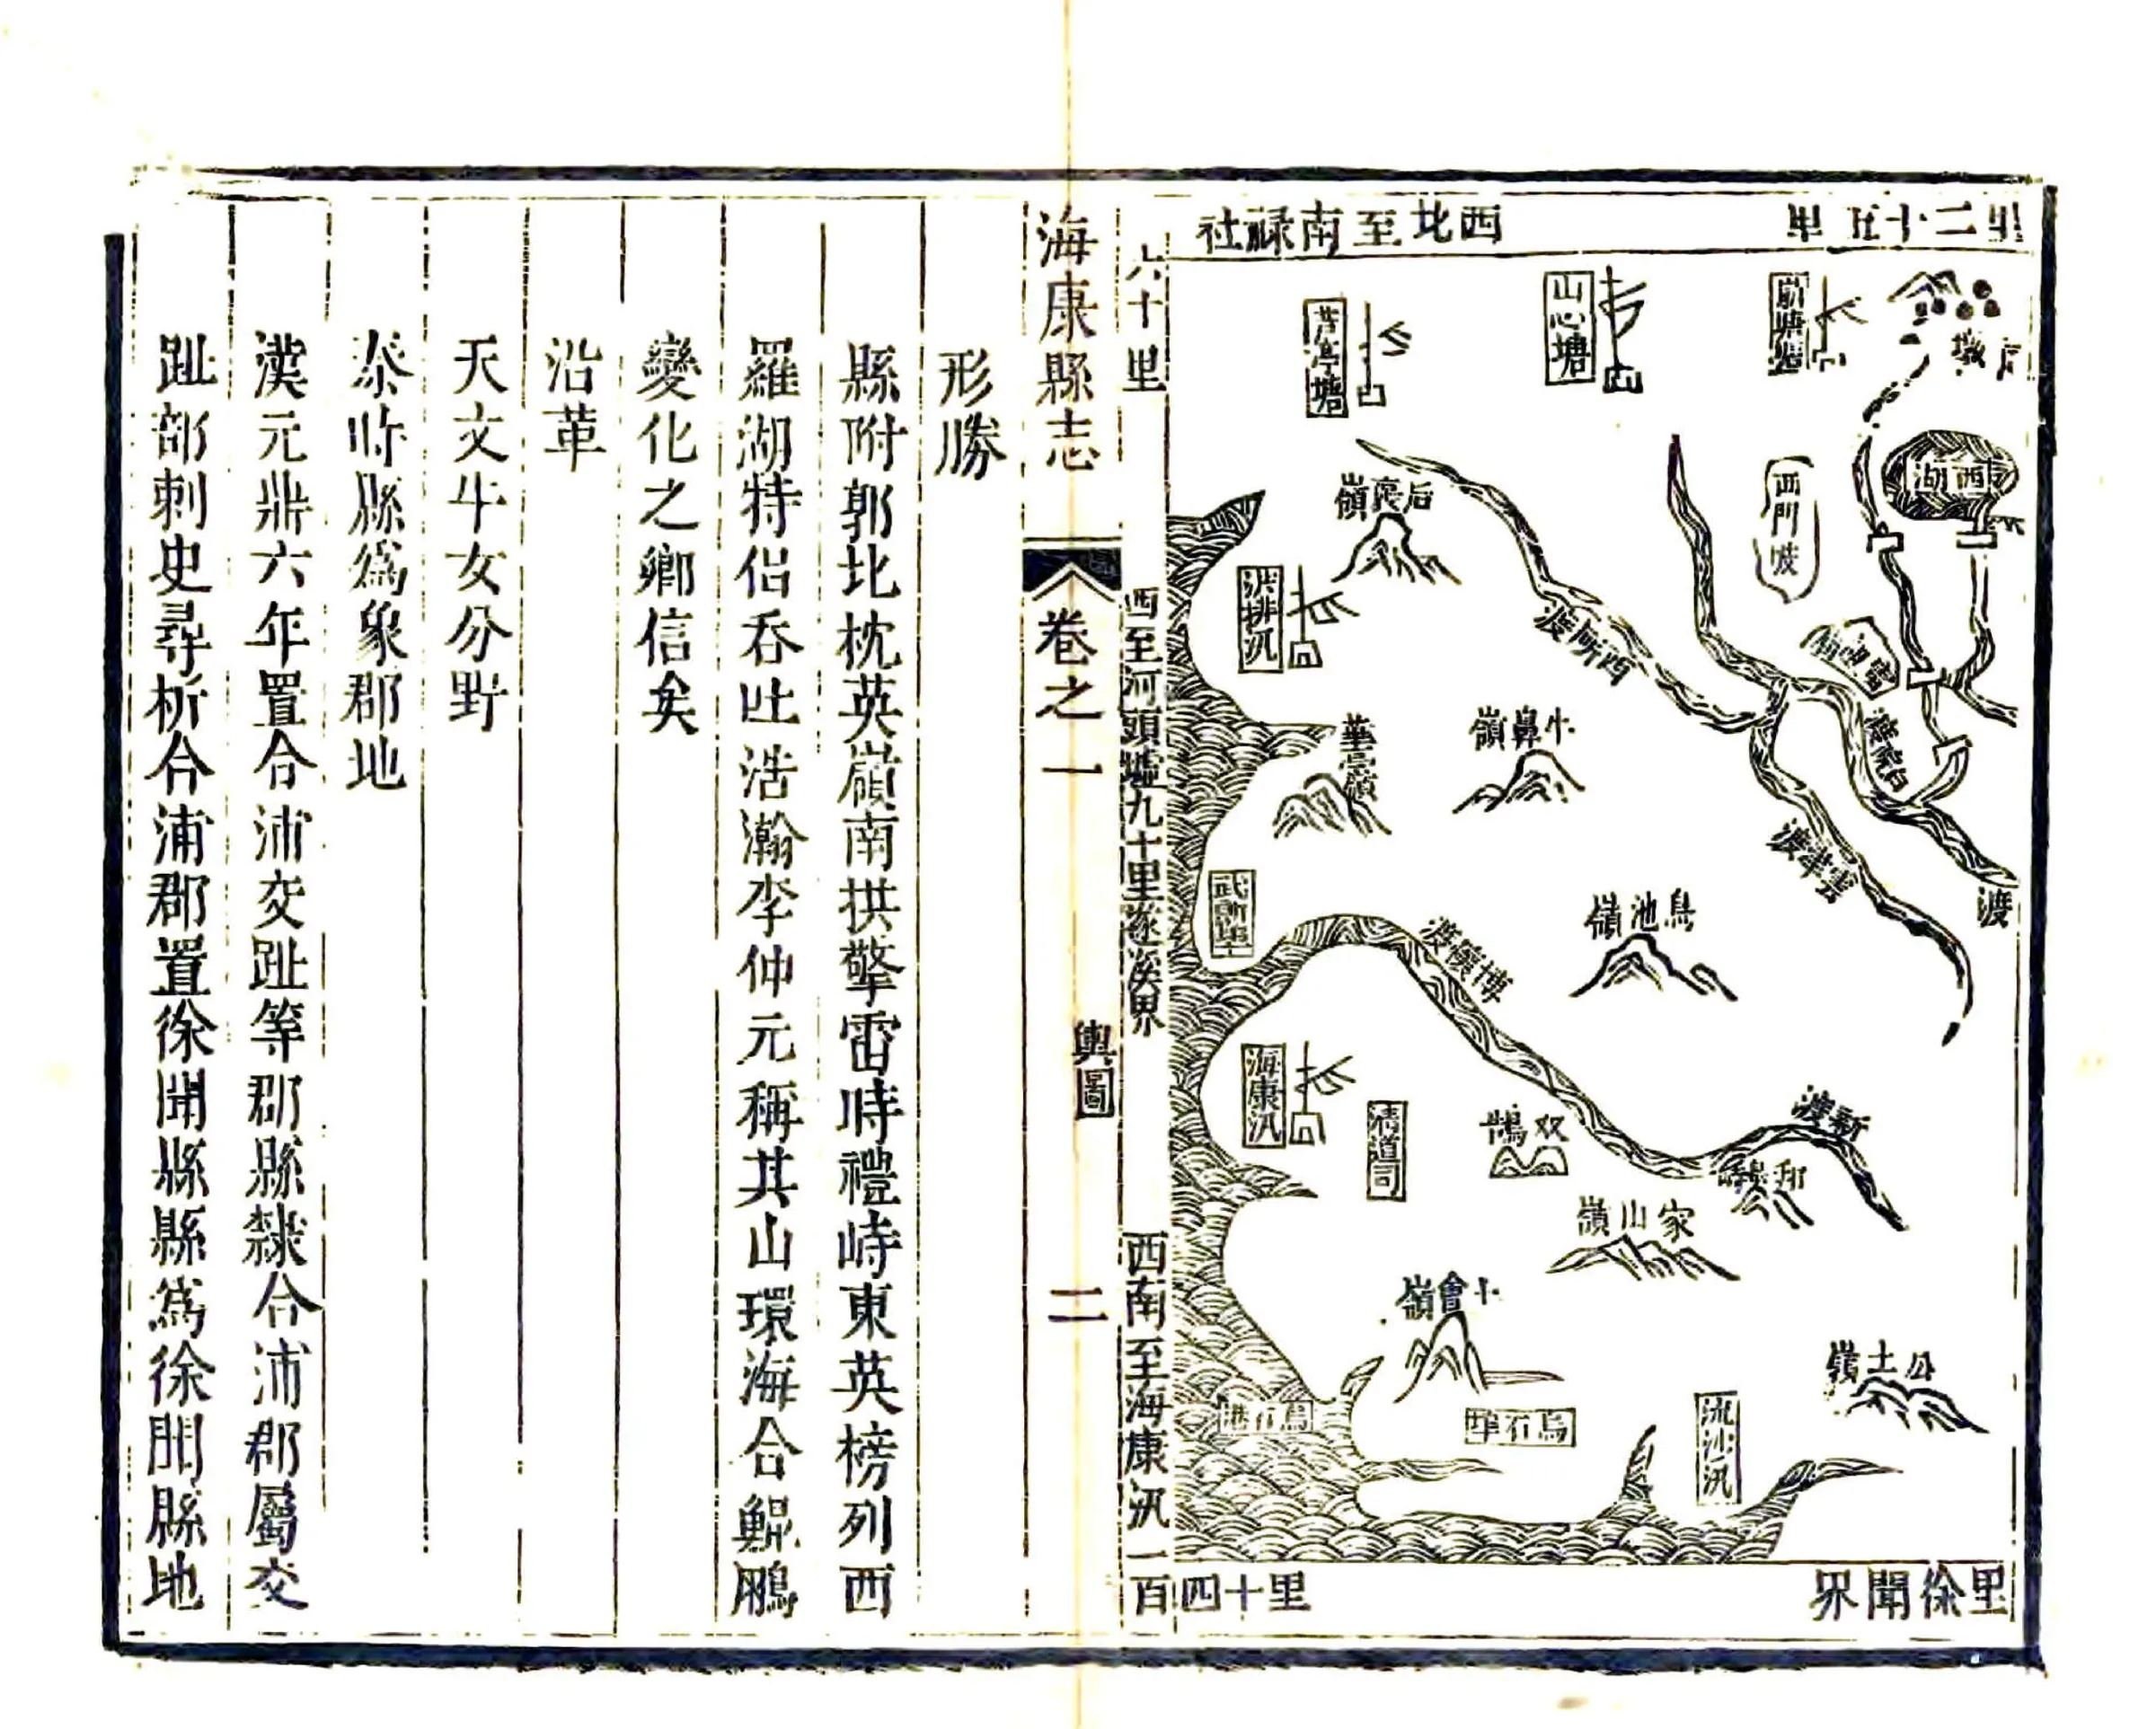 里二十五里
西北至南祿社
六十里
西至河頭墟九十里遂溪界
西南至海康汛一百四十里
里徐聞界
山心塘
西湖
西門坡
后嶺
洪排汛
西河渡
牛鼻嶺
渡
烏池嶺
博懷渡
海康汛
清道司
双
新渡
家山嶺
小會嶺
公土嶺
烏石港
烏石埠
流沙汛
海康縣志
卷之一
輿圖
二
形勝
縣附郭北枕英嶺南拱擎雷時禮峙東英榜列西
羅湖特侶吞吐浩瀚李仲元稱其山環海合鯤鵬
變化之鄉信矣
沿革
天文牛女分野
秦時縣爲象郡地
漢元鼎六年置合浦交趾等郡縣隸合浦郡屬交
趾部刺史尋析合浦郡置徐聞縣縣爲徐聞縣地